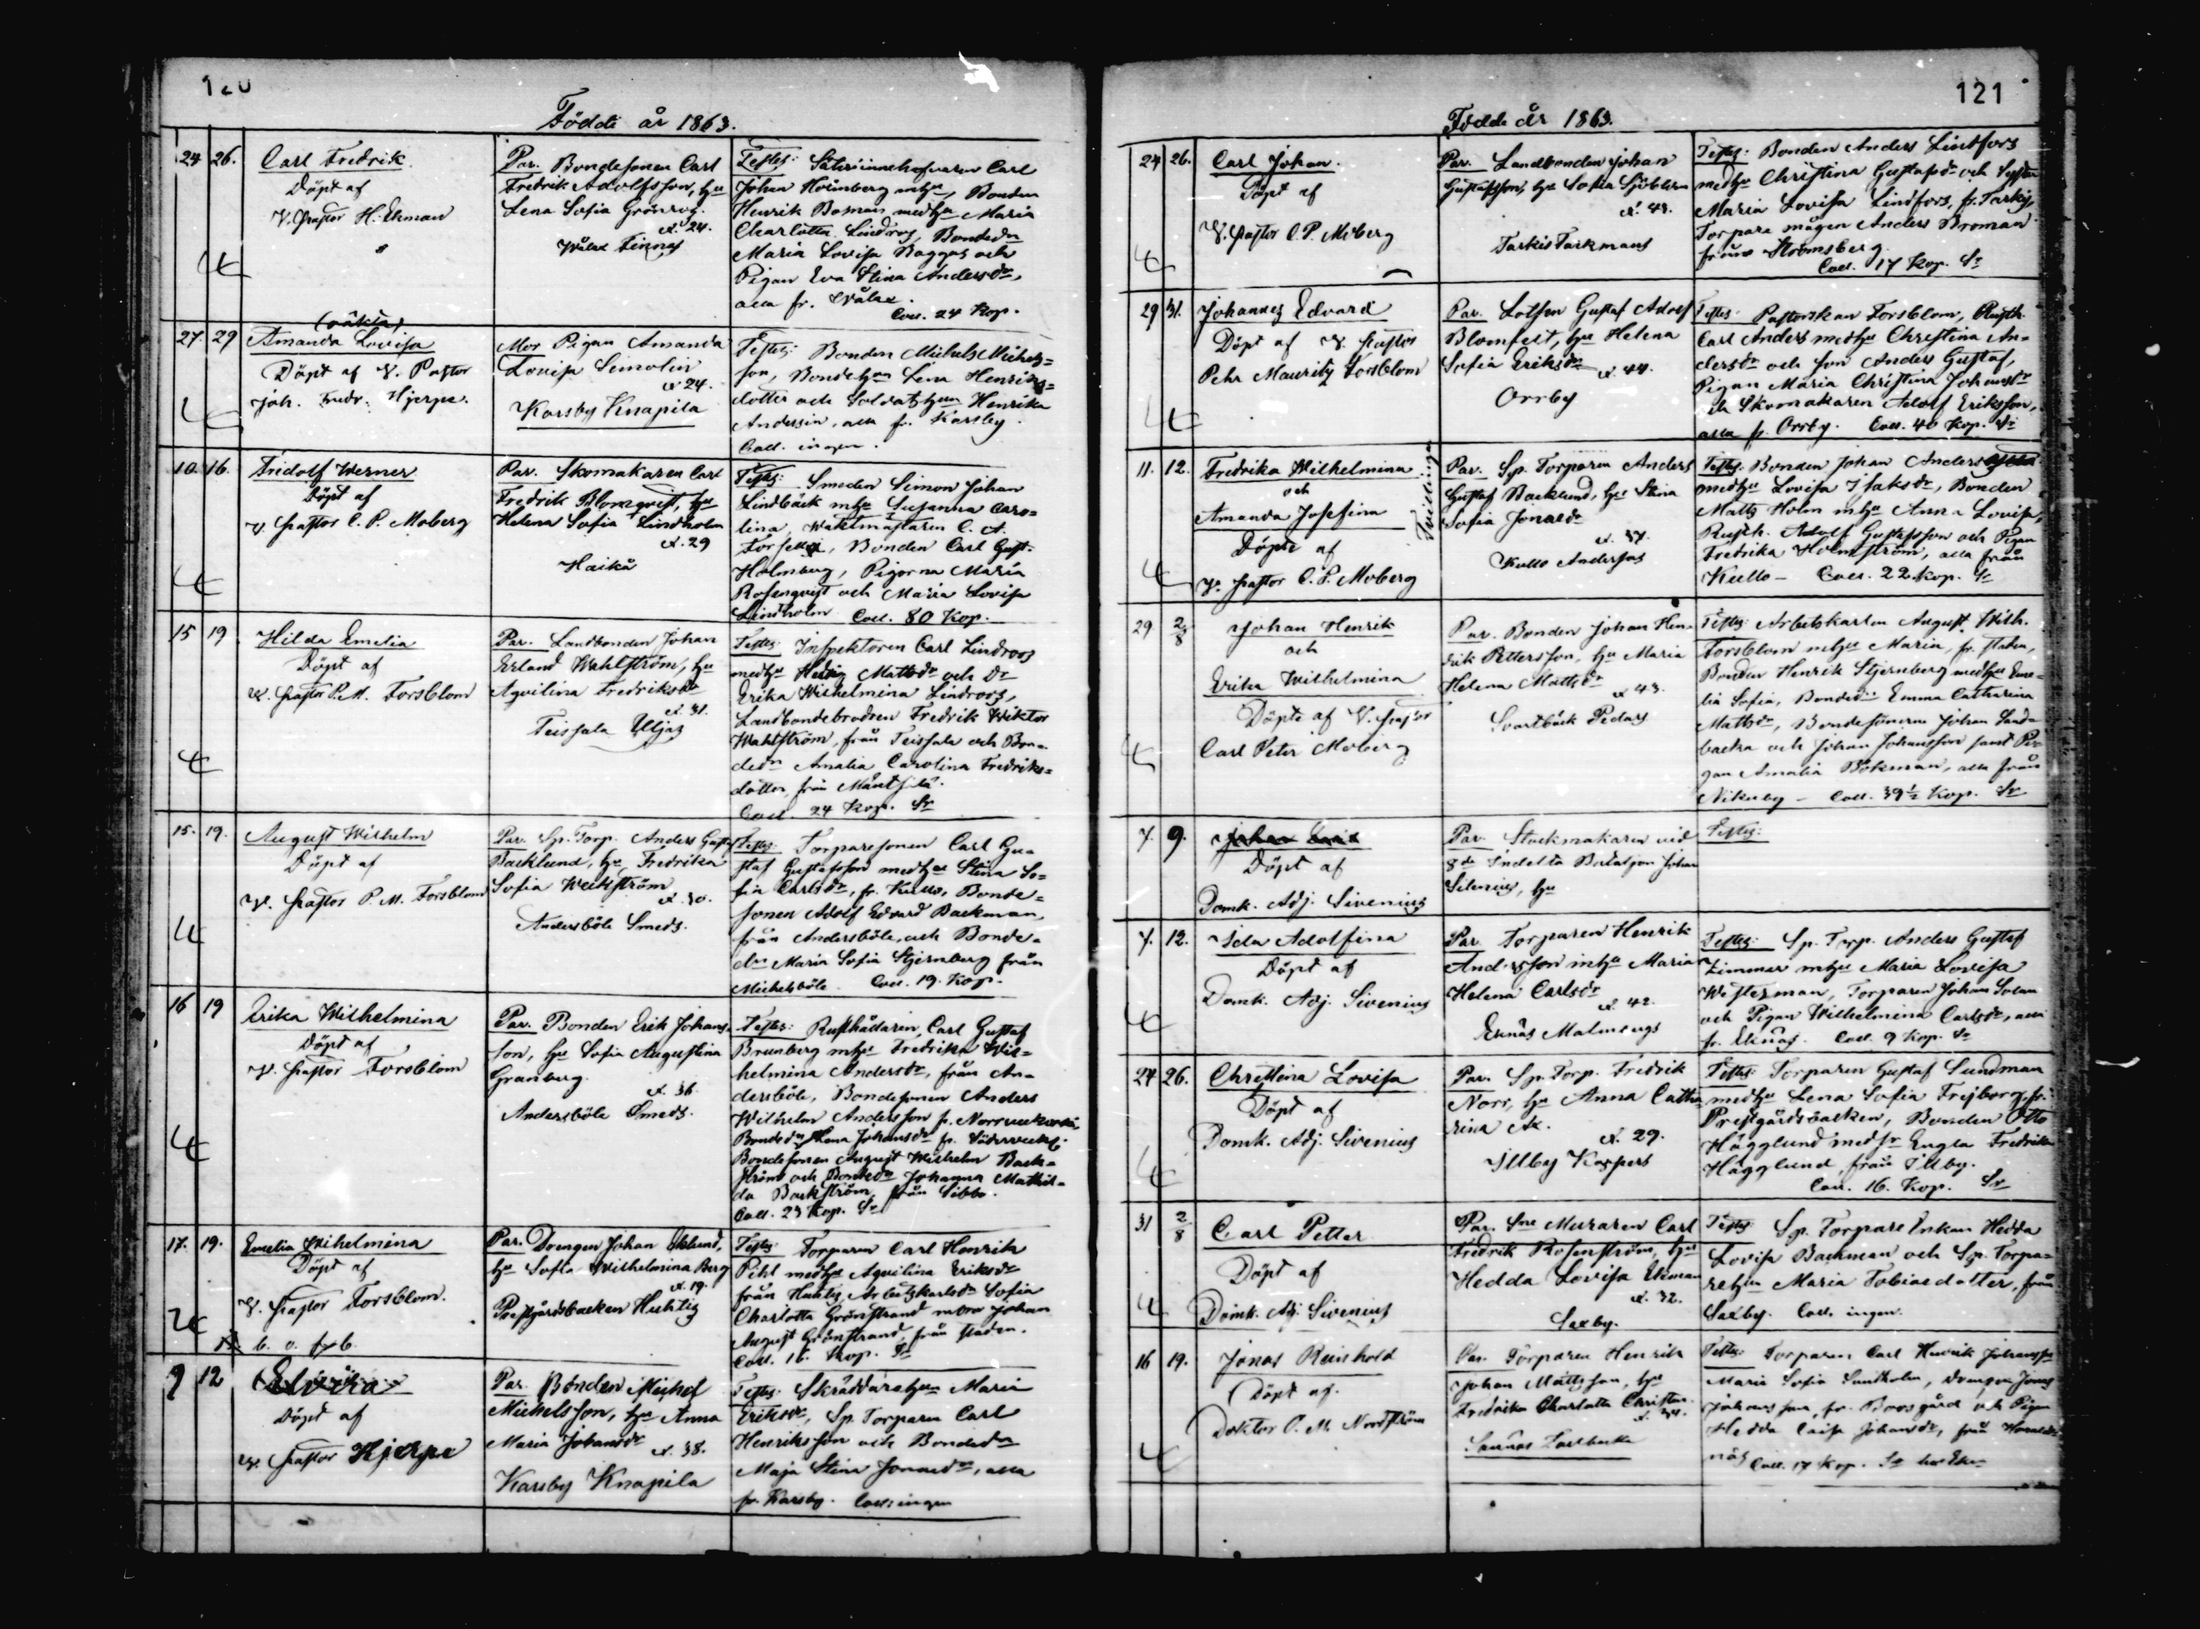 120
Födde år 1863.
24 26. Carl Fredrik
Döpt af
V. Pastor H. Ekman
Par. Bondesonen Carl
Fredrik Adolfsson, hu
Lena Sofia Grönroos.
ål. 24.
Wålax Finnas
Testes: Säteriinnehafvaren Carl
Johan Holmberg m hu, Bonden
Henrik Boman, med hu Maria
Charlotta Lindros, Bondedr
Maria Lovisa Baggas och
Pigan Eva Stina Andersdr,
alla fr. Wålax.
Coll. 24 Kop.
27. 29 (oäkta)
Amanda Lovisa
Döpt af V. Pastor
Joh. Fredr. Hjerpe.
Mor Pigan Amanda
Lovisa Simolin
ål 24.
Karsby Knapila
Testes: Bonden Michels Michels=
son, Bondehun Lena Henriks=
dotter och Soldatshun Henrika
Andersin, alla fr. Karsby.
Coll. ingen.
10. 16. Fridolf Werner
Döpt af
V. Pastor C. P. Moberg
Par. Skomakaren Carl
Fredrik Blomqvist, hu
Helena Sofia Lindholm
ål. 29
Haikå
Testes: Smeden Simon Johan
Lindbäck m hu Susanna Caro=
lina, Waktmästaren C. A.
Forsell, Bonden Carl Gust.
Holmberg, Pigorna Maria
Rosenqvist och Maria Lovisa
Lindholm Coll. 80 Kop.
15 19. Hilda Emelia
Döpt af
V. Pastor P. M. Forsblom
Par. Landbonden Johan
Erland Wahlström, hu
Aqvilina Fredriksdr
ål. 31.
Teissala Uljas
Testes: Inspektoren Carl Lindroos
med hu Hedvig Mattsdr och Dr
Erika Wilhelmina Lindroos,
Landbondebrodren Fredrik Wiktor
Wahlström, från Teissala och Bon=
dedr Amalia Carolina Fredriks=
dotter, från Mäntsälä.
Coll. 24 Kop. Sr
15. 19. August Wilhelm
Döpt af
V. Pastor P. M. Forsblom
Par. Sp. Torp. Anders Gustaf
Backlund, hu Fredrika
Sofia Weckström
ål. 30.
Andersböle Smeds.
Testes: Torparesonen Carl Gu=
staf Gustafsson med hu Stina So=
fia Carlsdr, fr. Kullo, Bonde=
sonen Adolf Edvard Backman,
från Andersböle, och Bonde=
dr Maria Sofia Stjernberg från
Mickelsböle. Coll. 19. Kop.
16 19 Erika Wilhelmina
Döpt af
V. Pastor Forsblom
Par. Bonden Erik Johans=
son, hu Sofia Augustina
Granberg.
ål. 36.
Andersböle Smeds.
Testes: Rusthållaren Carl Gustaf
Brunberg m hu Fredrika Wil=
helmina Andersdr, från An=
dersböle, Bondesonen Anders
Wilhelm Andersson fr. Norrveckoski
Bondedr Lena Johansdr fr. Söderveckoski
Bondesonen August Wilhelm Back=
ström och Bondedr Johanna Mathil=
da Backström från Sibbo.
Coll. 23 Kop. Sr
17. 19. Emelia Wilhelmina
Döpt af
V. Pastor Forsblom.
Par. Drengen Johan Eklund,
hu Sofia Wilhelmina Berg
ål. 19.
Prestgårdsbacken Huhtis
Testes: Torparen Carl Henrik
Pihl med hu Aqvilina Eriksdr
från Huktis, Arbetskarlsdr Sofia
Charlotta Grönstrand m bro Johan
August Grönstrand, från staden.
Coll. 16. Kop. Sr
9 12 Elvira
Döpt af
V. Pastor Hjerpe
Par. Bonden Michel
Michelsson, hu Anna
Maria Johansdr
ål. 38.
Karsby Knapila
Testes: Skräddarehun Maria
Eriksdr, Sp. Torparen Carl
Henriksson och Bondedr
Maja Stina Jonasdr, alla
fr. Karsby. Coll. ingen
121
Födde år 1863.
24 26. Carl Johan.
Döpt af
V. Pastor C. P. Moberg
Par. Landbonden Johan
Gustafsson, hu Sofia Sjöblom
ål. 43.
Tarkis Tarkmans
Testes: Bonden Anders Lindfors
med hu Christina Gustafsdr och
Maria Lovisa Lindfors, fr. Tarkis,
Torpare mågen Anders Broman
från Strömsberg.
Coll. 17 Kop. Sr
29 31. Johannes Edvard
Döpt af V. Pastor
Pehr Mauritz Forsblom
Par. Lotsen Gustaf Adolf
Blomfelt, hu Helena
Sofia Eriksdr
ål. 44.
Orrby
Testes: Pastorskan Forsblom, Rusth.
Carl Anders med hu Christina An=
dersdr och son Anders Gustaf,
Pigan Maria Christina Johansdr
och Skomakaren Adolf Eriksson,
alla fr. Orrby. Coll. 40 Kop. Sr
11. 12. Fredrika Wilhelmina
och
Amanda Josefina
Döpte af
V. Pastor C. P. Moberg
Par. Sp. Torparen Anders
Gustaf Backlund, hu Stina
Sofia Jonaedr
ål. 37.
Kullo Andersas
Testes: Bonden Johan Anders
med hu Lovisa Isaksdr, Bonden
Matts Holm m hu Anna Lovisa,
Rusth. Adolf Gustafsson och Pigan
Fredrika Holmström, alla från
Kullo – Coll. 22. Kop. Sr
29 2/8 Johan Henrik
och
Erika Wilhelmina
Döpte af V. Pastor
Carl Peter Moberg
Par. Bonden Johan Hen=
drik Pettersson, hu Maria
Helena Mattsdr
ål 43.
Svartbäck Pedars
Testes: Arbetskarlen August Wilh.
Forsblom m hu Maria, fr. staden,
Bonden Henrik Stjernberg med hu Eme=
lia Sofia, Bondedr Emma Catharina
Mattsdr, Bondesönerne Johan Sand=
backa och Johan Johansson samt Pi=
gan Amalia Bökman, alla från
Nikuby – Coll. 39½ Kop. Sr
7. 9.
Döpt af
Domk. Adj. Sivenius
Par. Stockmakaren vid
8de Indelta Bataljon Johan
Silenius, hu
Testes:
7. 12. Ida Adolfina
Döpt af
Domk. Adj. Sivenius
Par. Torparen Henrik
Andersson m hu Maria
Helena Carlsdr
ål. 42.
Eknäs Malmengs
Testes: Sp. Torp. Anders Gustaf
Zimmer m hu Maria Lovisa
Westerman, Torparen Johan
och Pigan Wilhelmina Carlsdr, alla
fr. Eknäs. Coll. 9 Kop. Sr
24 26. Christina Lovisa
Döpt af
Domk. Adj. Sivenius
Par. Sp. Torp. Fredrik
Norr, hu Anna Catha=
rina Ax.
ål. 29.
Illby Kaspers
Testes: Torparen Gustaf Sundman
med hu Lena Sofia Frejborg, fr.
Prestgårdsbacken, Bonden Otto
Hägglund med sr Engla Fredrika
Hägglund, från Illby.
Coll. 16. Kop. Sr
31 2/8 Carl Petter
Döpt af
Domk. Adj. Sivenius
Par. Sne Muraren Carl
Fredrik Rosenström, hu
Hedda Lovisa Ekman
ål. 32.
Saxby.
Testes: Sp. Torpare Enkan Hedda
Lovisa Backman och Sp. Torpa=
rehun Maria Tobiaedotter, från
Saxby. Coll. ingen.
16 19. Jonas Reinhold
Döpt af.
Doktor C. M. Nordström
Par. Torparen Henrik
Johan Mattsson, hu
Fredrika Charlotta Christian
Testes: Torparen Carl Henrik Johansson
Maria Sofia Sundholm, drengen Jonas
Johansson, fr. Boosgård och Pigan
Hedda Caisa Johansdr, från
näs Coll. 17 Kop.